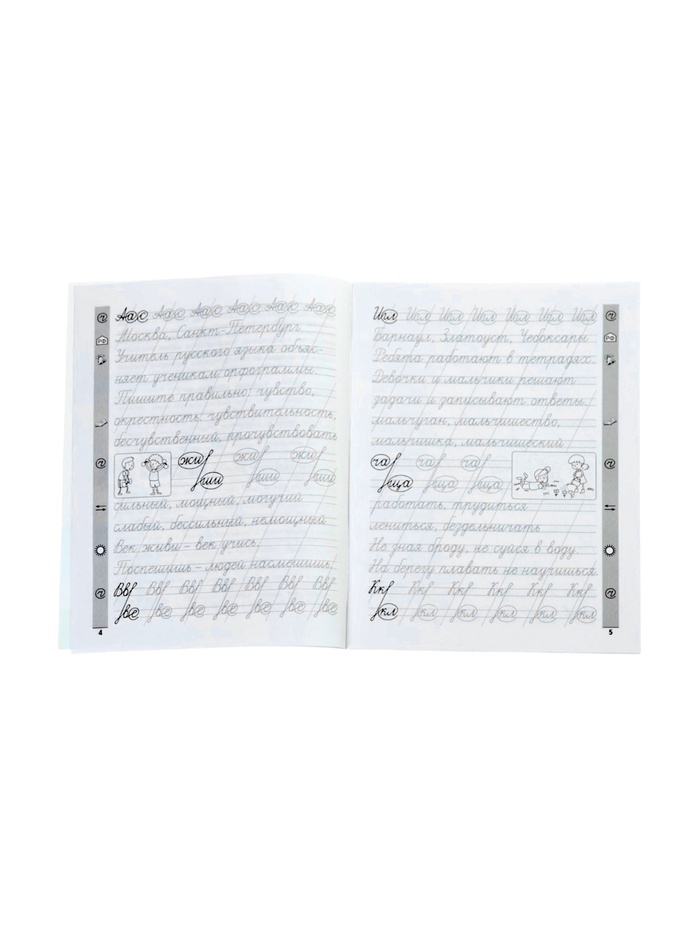 Аах Аах Аах Аах Аах Аах
Москва, Санкт-Петербург
Учитель русского языка объяс-
няет ученикам орфограммы.
Пишите правильно: чувство,
окрестность, чувствительность,
бесчувственный, прочувствовать
жи жи жи
ши ши ши
сильный, мощный, могучий
слабый, бессильный, немощный
Век живи – век учись.
Поспешишь – людей насмешишь.
Ввв Ввв Ввв Ввв Ввв Ввв Ввв
ве ве ве ве ве ве
4
Ипл Ипл Ипл Ипл Ипл Ипл Ипл
Барнаул, Златоуст, Чебоксары
Ребята работают в тетрадях.
Девочки и мальчики решают
задачи и записывают ответы.
мальчуган, мальчишество,
мальчишка, мальчишеский
ча ча ча
ща ща ща
работать, трудиться
лениться, бездельничать
Не зная броду, не суйся в воду.
На берегу плавать не научишься.
Ккк Ккк Ккк Ккк Ккк Ккк
кл кл кл кл кл кл
5